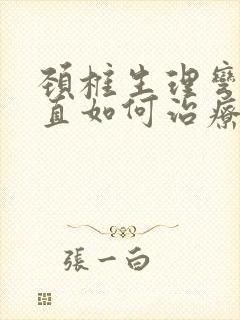 頚椎生理彎
直如何治療
張一白